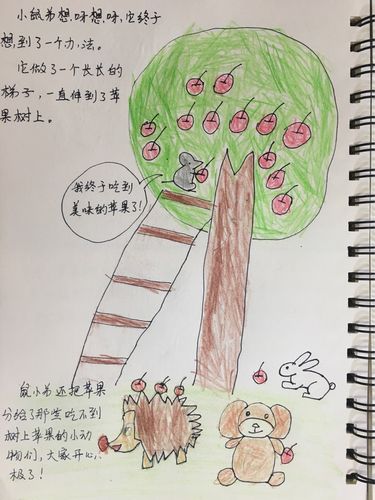 小鼠弟想呀想呀，它终于
想到了一个办法。
它做了一个长长的
梯子，一直伸到了苹
果树上。
我终于吃到
美味的苹果了！
鼠小弟还把苹果
分给了那些吃不到
树上苹果的小动
物们，大家开心
极了！